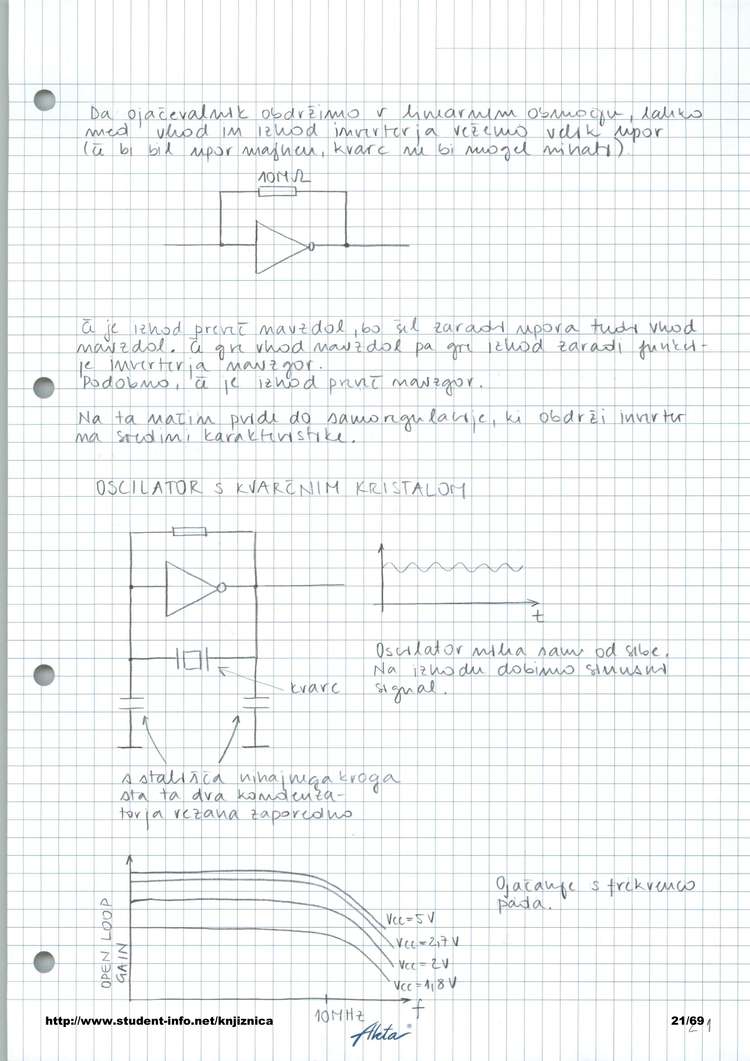 Da ojačevalnik obdržimo v linearnem območju, lahko
med vhod in izhod inverterja vežemo velik upor
(če bi bil upor majhen, kvarc ne bi mogel nihati)
10MΩ
Če je izhod prevlč navzdol, bo šel zaradi upora tudi vhod
navzdol. Če gre vhod navzdol pa gre izhod zaradi funkci-
je inverterja navzgor.
Podobno, če je izhod prevlč navzgor.
Na ta način pride do samoregulacije, ki obdrži inverter
na sredini karakteristike.
OSCILATOR S KVARČNIM KRISTALOM
t
Oscilator niha sam od sebe.
Na izhodu dobimo sinusni
signal.
kvarc
s stališča nihajnega kroga
sta ta dva kondenza-
torja vezana zaporedno
OPEN LOOP
GAIN
Vcc=5V
Vcc=2,7V
Vcc=2V
Vcc=1,8V
10MHz
f
Ojačanje s frekvenco
pada.
http://www.student-info.net/knjiznica
Akta
21/69
21